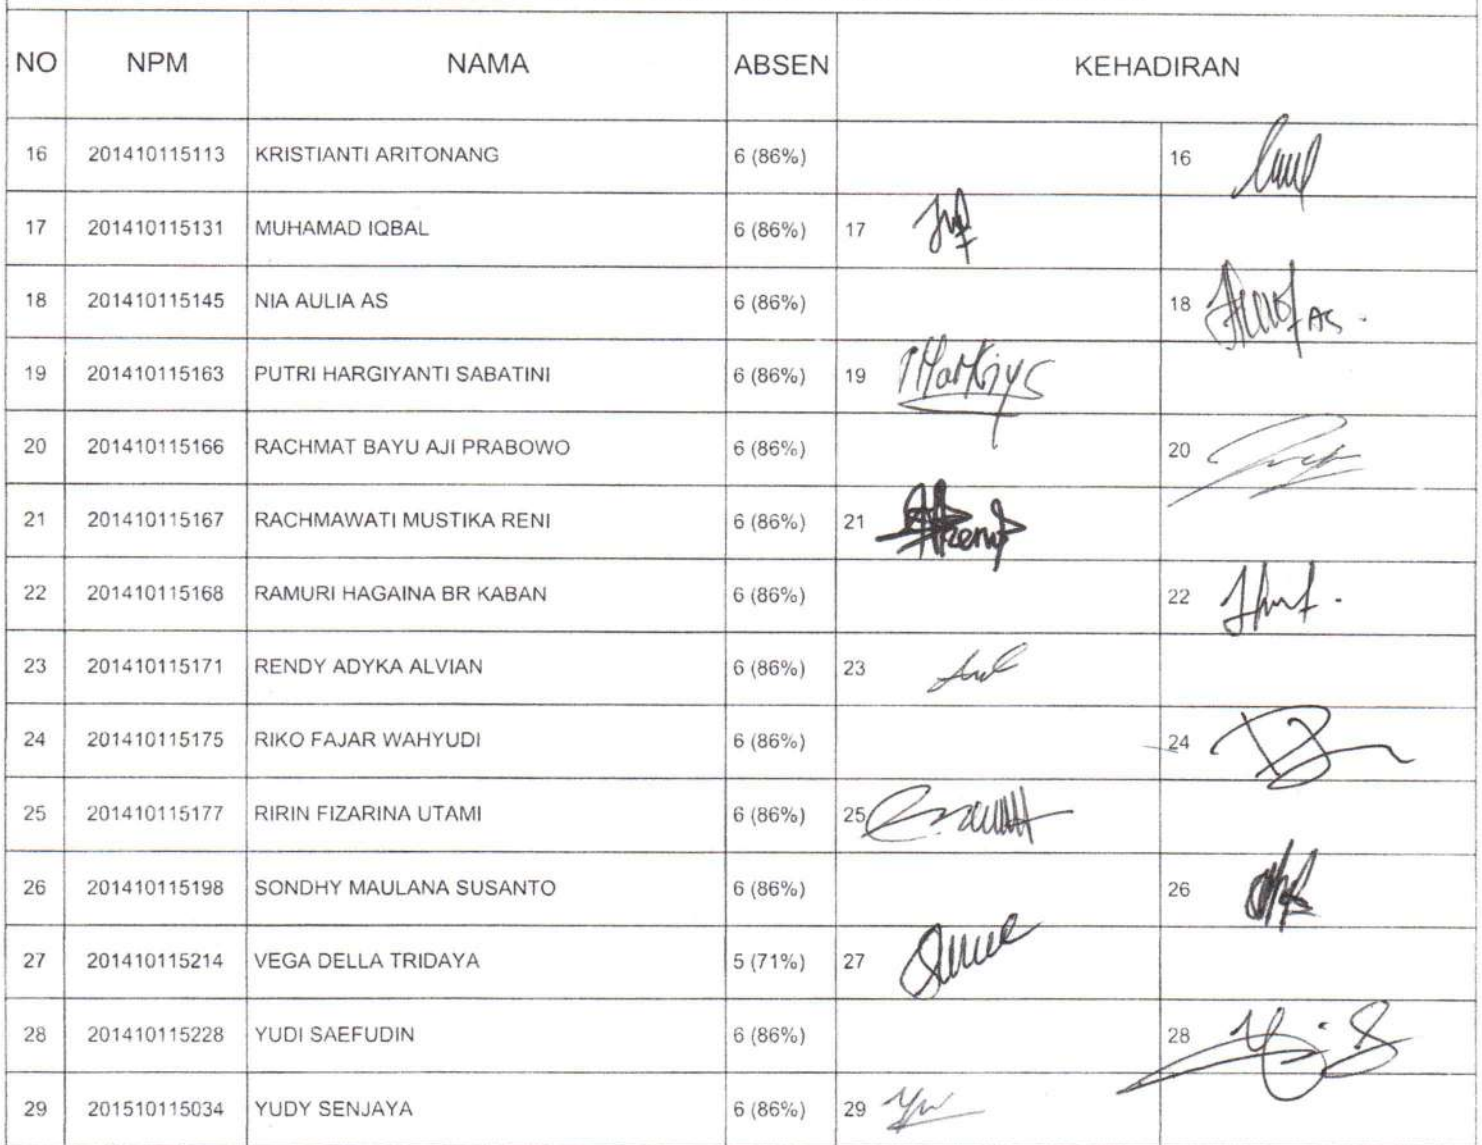 NO NPM NAMA ABSEN KEHADIRAN
16 201410115113 KRISTIANTI ARITONANG 6 (86%) 16
17 201410115131 MUHAMAD IQBAL 6 (86%) 17
18 201410115145 NIA AULIA AS 6 (86%) 18 AS.
19 201410115163 PUTRI HARGIYANTI SABATINI 6 (86%) 19
20 201410115166 RACHMAT BAYU AJI PRABOWO 6 (86%) 20
21 201410115167 RACHMAWATI MUSTIKA RENI 6 (86%) 21
22 201410115168 RAMURI HAGAINA BR KABAN 6 (86%) 22
23 201410115171 RENDY ADYKA ALVIAN 6 (86%) 23
24 201410115175 RIKO FAJAR WAHYUDI 6 (86%) 24
25 201410115177 RIRIN FIZARINA UTAMI 6 (86%) 25
26 201410115198 SONDHY MAULANA SUSANTO 6 (86%) 26
27 201410115214 VEGA DELLA TRIDAYA 5 (71%) 27
28 201410115228 YUDI SAEFUDIN 6 (86%) 28
29 201510115034 YUDY SENJAYA 6 (86%) 29